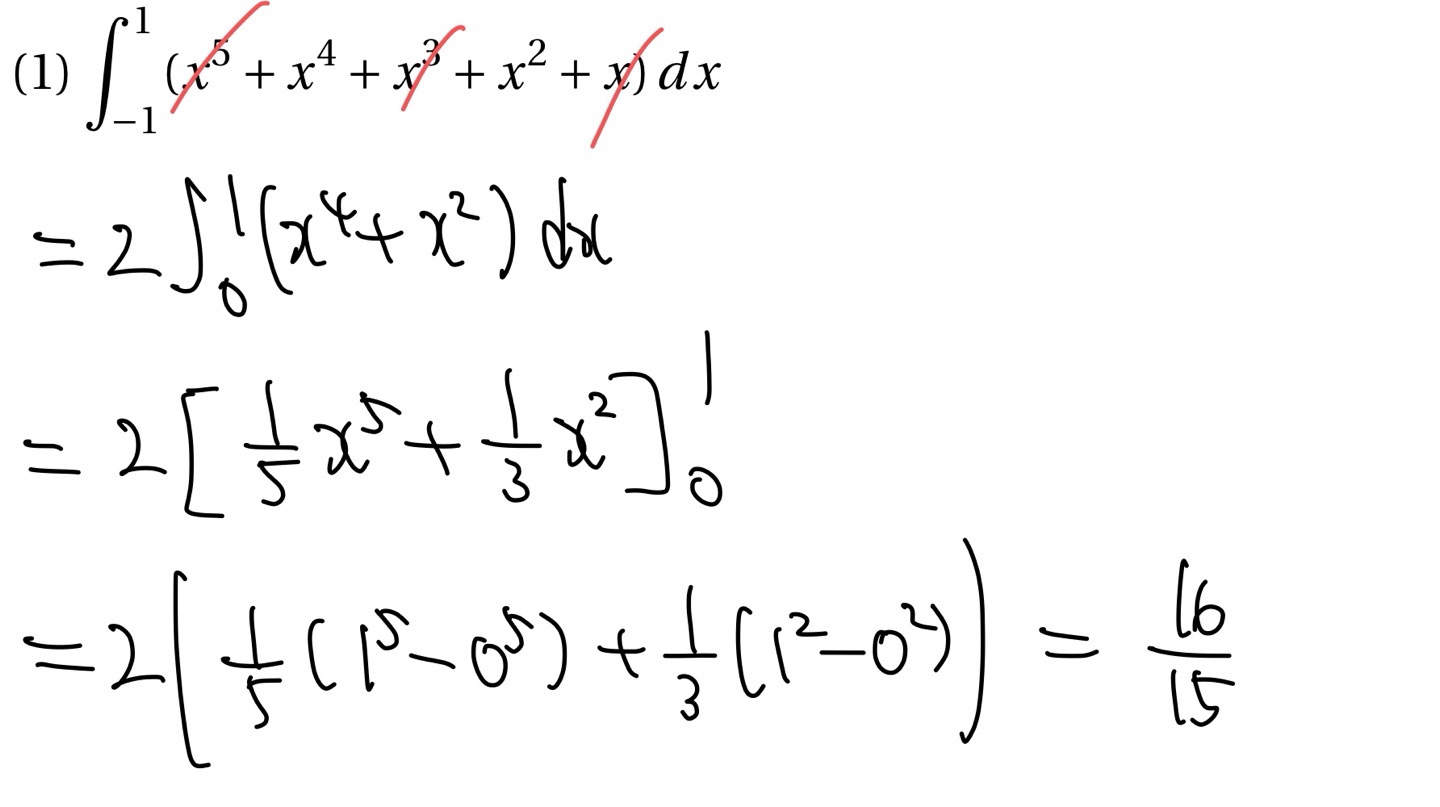 (1) ∫_{-1}^{1} (x^5 + x^4 + x^3 + x^2 + x) dx
= 2 ∫_0^1 (x^4 + x^2) dx
= 2 [ 1/5 x^5 + 1/3 x^2 ]_0^1
= 2 ( 1/5 (1^5 - 0^5) + 1/3 (1^2 - 0^2) ) = 16/15